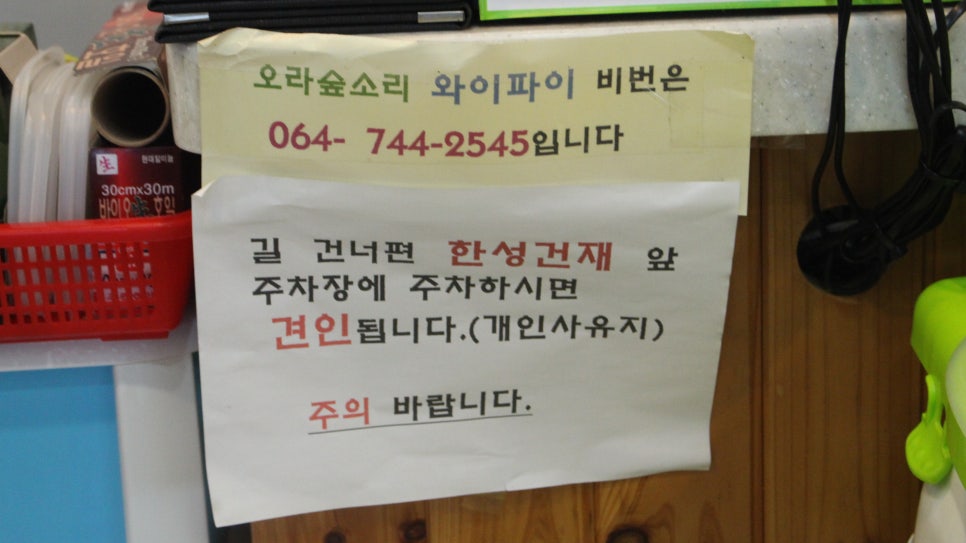 오라숲소리 와이파이 비번은
064- 744-2545입니다
길 건너편 한성건재 앞
주차장에 주차하시면
견인됩니다.(개인사유지)
주의 바랍니다.
30cmx30m